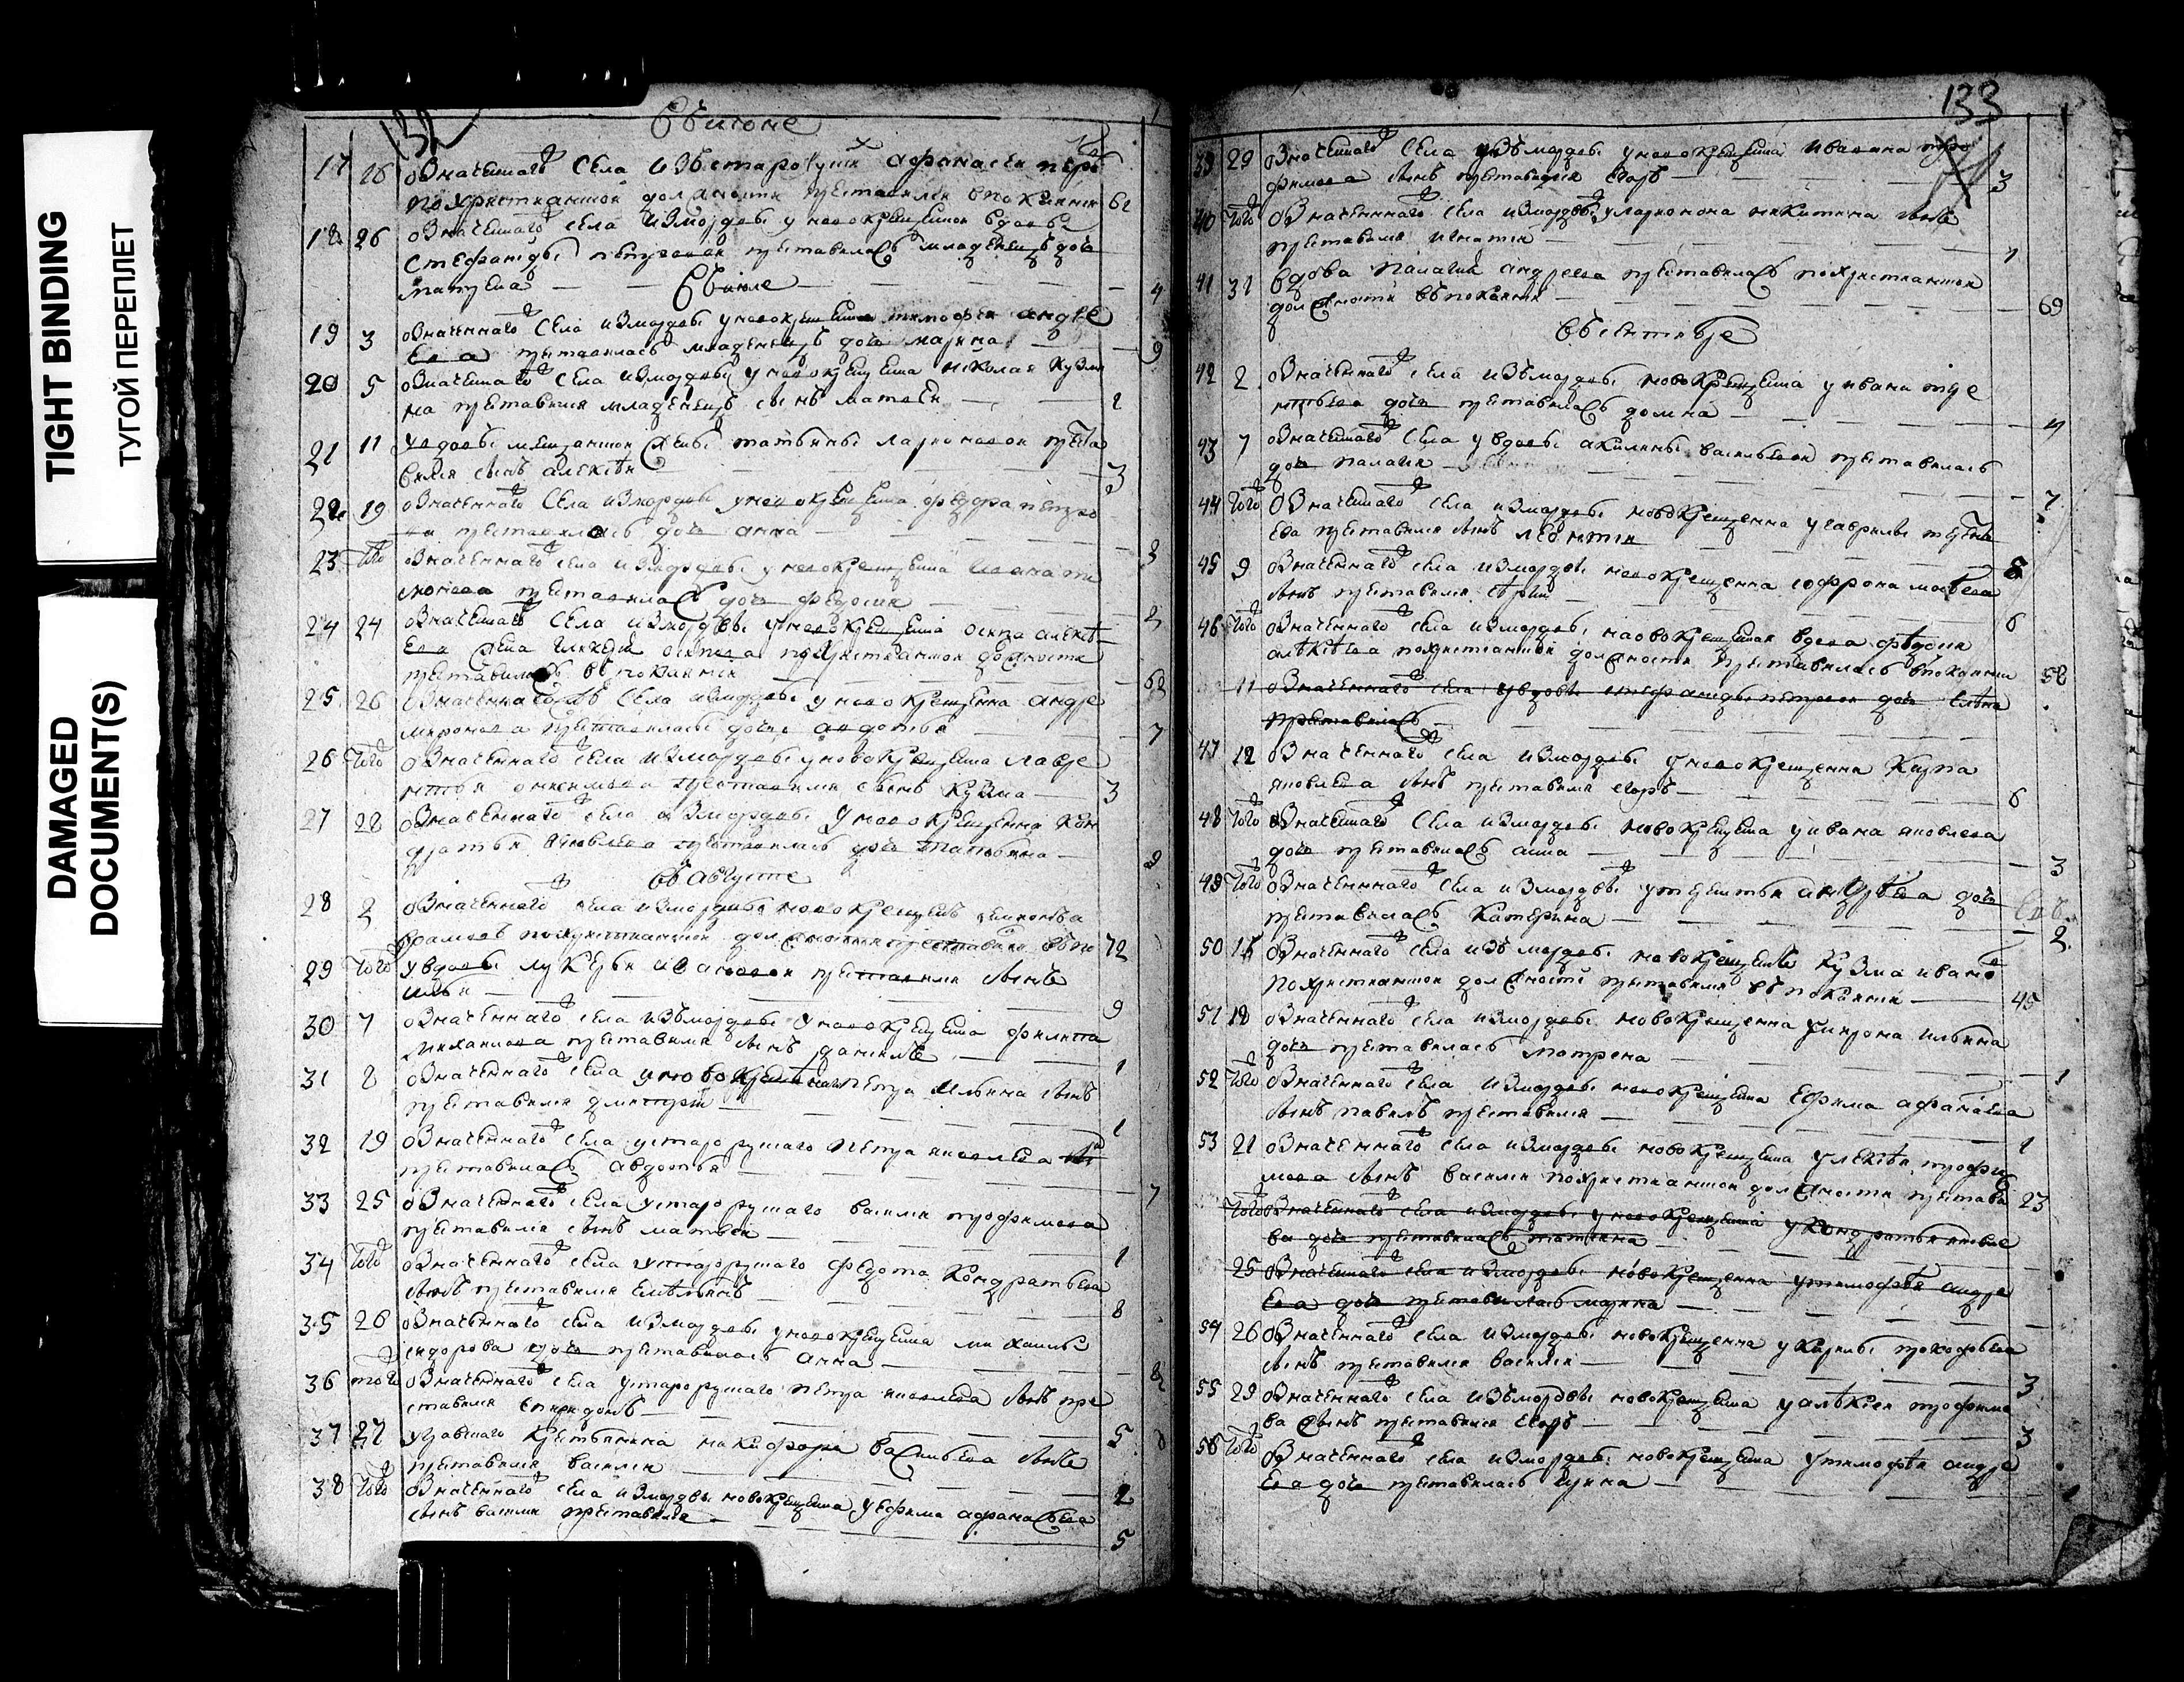 TIGHT BINDING
ТУГОЙ ПЕРЕПЛЕТ
DAMAGED
DOCUMENT(S)
132
въ июне
17 26 означеннаго села изъ старо афанасеи
по христианской должности преставился в покаянии 61
18 26 означеннаго села измордвы у новокрещенои вдовы
Стефаниды преставилась младенецъ дочь
въ июле 4
19 3 означеннаго села измордвы у новокрещена тимофея андре
ева преставилась младенецъ дочь марина 9
20 5 означеннаго села измордвы у новокрещена николая кузми
на преставился младенецъ сынъ матвеи 2
21 11 у вдовы татьяны ларионовои преста
вился сынъ алексеи 3
22 19 означеннаго села измордвы у новокрещена федора петро
ва преставилась дочь анна 3
23 того означеннаго села измордвы у новокрещена
преставилась дочь федосия 2
24 24 означеннаго села измордвы у новокрещена осипа алексе
ева жена осипова по христианской должности
преставилась в покаянии 62
25 26 села измордвы у новокрещена андре
миронова преставилась дочь авдотья 7
26 того означеннаго села измордвы у новокрещена лавре
нтья преставился сынъ кузма 3
27 28 означеннаго села измордвы у новокрещена кон
дратья яковлева преставилась дочь татьяна 2
въ августе
28 2 означеннаго села измордвы новокрещенъ
по христианской должности преставился 72
29 того у вдовы лукерьи преставился сынъ
илья 9
30 7 означеннаго села изъ мордвы у новокрещена филипа
михаилова преставился сынъ данилъ 1
31 8 означеннаго села у новокрещена петра ильина сынъ
преставился дмитреи 1
32 19 означеннаго села у старорускаго петра яковлева
преставилась авдотья 7
33 25 означеннаго села у старорускаго василья трофимова
преставился сынъ матвеи 1
34 того означеннаго села у старорускаго федота кондратьева
сынъ преставился емельянъ 8
35 26 означеннаго села измордвы у новокрещена михаилы
сидорова дочь преставилась анна 2
36 того означеннаго села у старорускаго петра яковлева сынъ пре
ставился спиридонъ 5
37 27 крестьянина никифора васильева сынъ
преставился василеи 2
38 того означеннаго села измордвы новокрещена у ефима афанасьева
сынъ василеи преставился 5
133
39 29 означеннаго села изъ мордвы у новокрещена ивана тро
фимова сынъ преставился егоръ 3
40 того означеннаго села измордвы у лариона никитина сынъ
преставился игнатеи 1
41 31 вдова палагия андреева преставилась по христианской
должности въ покаянии 69
въ сентябре
42 2 означеннаго села изъ мордвы новокрещена у ивана
дочь преставилась домна 4
43 7 означеннаго села у вдовы акилины васильевои преставилась
дочь палагия 7
44 того означеннаго села измордвы новокрещена у гаврилы
ева преставился сынъ леонтеи
45 9 означеннаго села измордвы новокрещена софрона матвеева
сынъ преставился 6
46 того означеннаго села измордвы новокрещеная вдова федосия
алексеева по христианской должности преставилась в покаянии 58
11 означеннаго села у вдовы стефаниды петровои дочь елена
преставилась
47 12 означеннаго села измордвы у новокрещена карпа
яковлева сынъ преставился егоръ 6
48 того означеннаго села измордвы новокрещена у ивана яковлева
дочь преставилась анна 3
49 того означеннаго села измордвы у терентья андреева дочь
преставилась катерина 2
50 17 означеннаго села изъ мордвы новокрещенъ кузма ивано
по христианской должности преставился въ покаянии 45
51 18 означеннаго села измордвы новокрещена у мирона ильина
дочь преставилась матрена 1
52 того означеннаго села измордвы новокрещена ефима афанасева
сынъ павилъ преставился 1
53 21 означеннаго села измордвы новокрещена у алексея трофи
мова сынъ василеи по христианской должности преставися 23
того означеннаго села измордвы у новокрещена у кондратья яковле
ва дочь преставилась татьяна
25 означеннаго села измордвы новокрещена у тимофея андре
ева дочь преставилась марина
54 26 означеннаго села измордвы новокрещена у кирилы прокофьева
сынъ преставился василеи 3
55 29 означеннаго села изъ мордвы новокрещена у алексея трофимо
ва сынъ преставился егоръ 3
56 того означеннаго села измордвы новокрещена у тимофея андре
ева дочь преставилась ирина